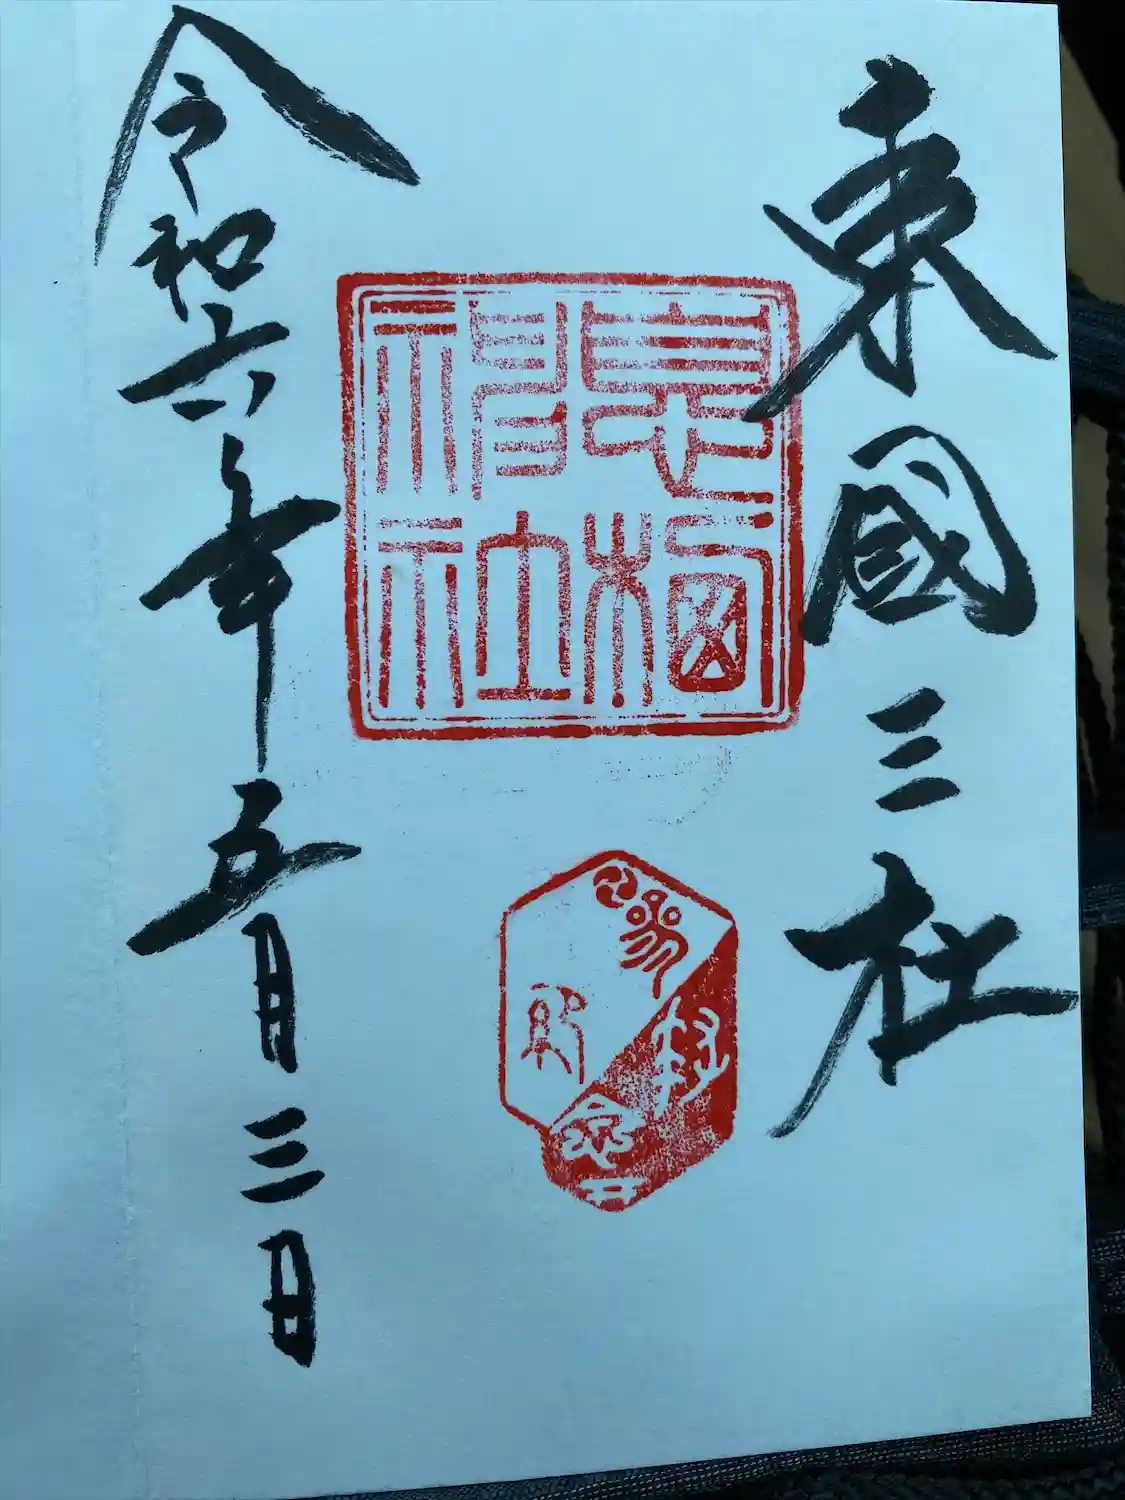 東國三社
息栖
神社
令和六年五月三日